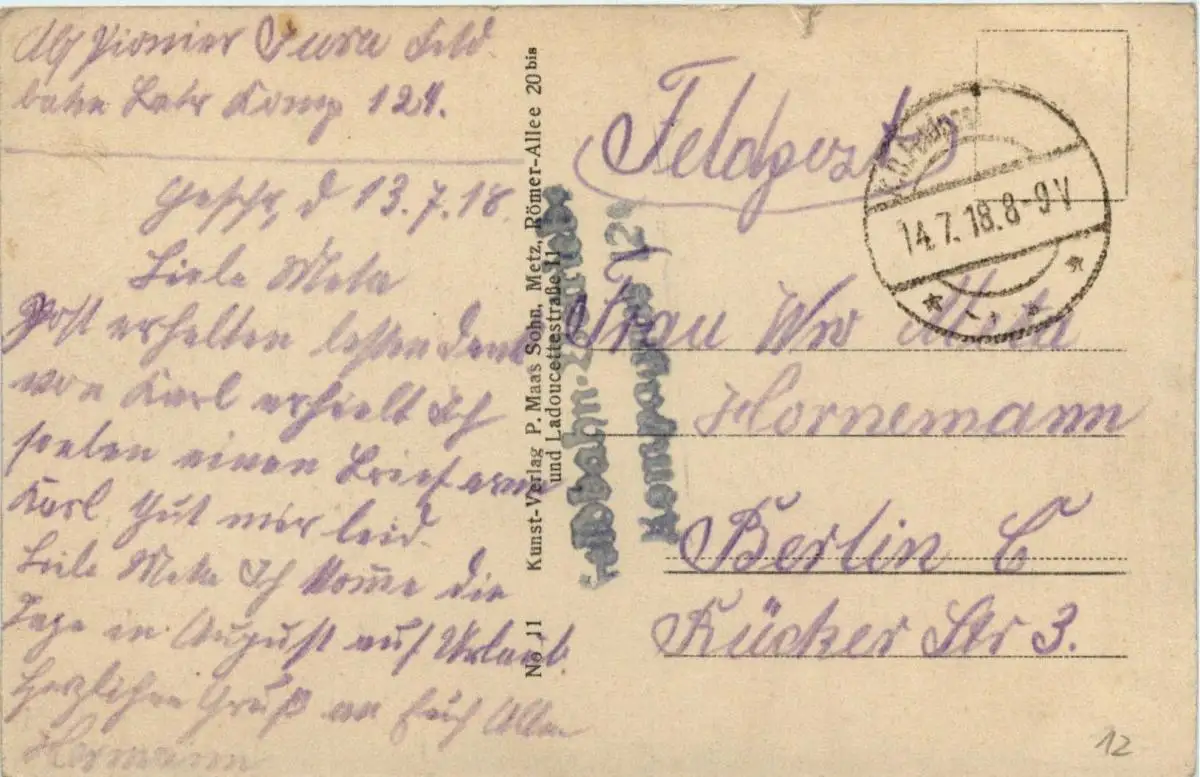 Abs Pionier Feld
bahn Betr Komp 121.
Geschr, d 13.7.18.
Liebe Meta
Post erhalten besten Dank
von Karl erhielt Ich
soeben einen Brief arme
Karl thut mir leid.
Liebe Meta Ich komme die
Tage in August auf Urlaub.
Herzlichen Gruß an Euch Allen
Hermann
No 11 Kunst-Verlag P. Maas Sohn, Metz, Römer-Allee 20 bis
und Ladoucettestraße 11
Feldpost
14.7.18.8-9V
Frau Ww Meta
Hornemann
Berlin C
Rücker Str 3.
12